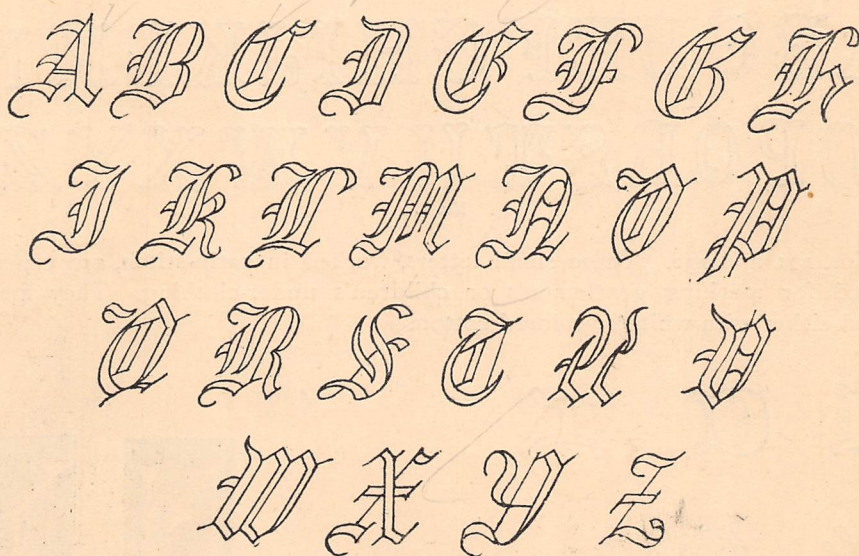 A B C D E F G H
I K L M N O P
Q R S T U V
W X Y Z